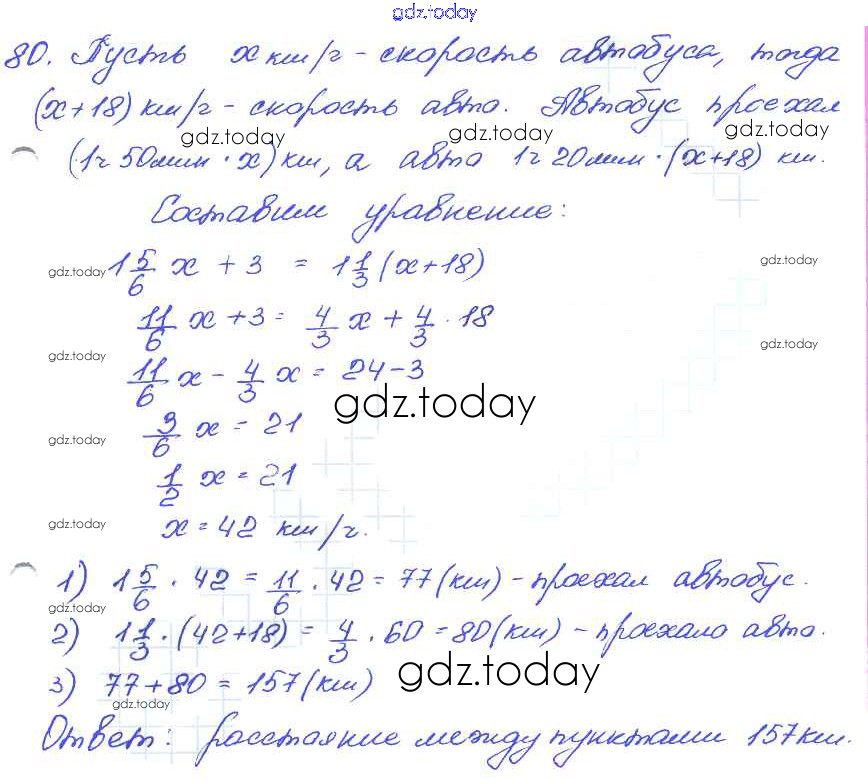 gdz.today
80. Пусть x км/ч - скорость автобуса, тогда
(x+18) км/ч - скорость авто. Автобус проехал
gdz.today gdz.today gdz.today
(1ч 50мин · x) км, а авто 1ч 20мин · (x+18) км.
Составим уравнение:
gdz.today 1 5/6 x + 3 = 1 1/3 (x+18) gdz.today
11/6 x + 3 = 4/3 x + 4/3 · 18
gdz.today gdz.today
11/6 x - 4/3 x = 24-3
gdz.today
3/6 x = 21
gdz.today
1/2 x = 21
gdz.today
x = 42 км/ч.
1) 1 5/6 · 42 = 11/6 · 42 = 77 (км) - проехал автобус.
gdz.today
2) 1 1/3 · (42+18) = 4/3 · 60 = 80 (км) - проехало авто.
3) 77+80 = 157 (км)
gdz.today gdz.today
Ответ: расстояние между пунктами 157 км.